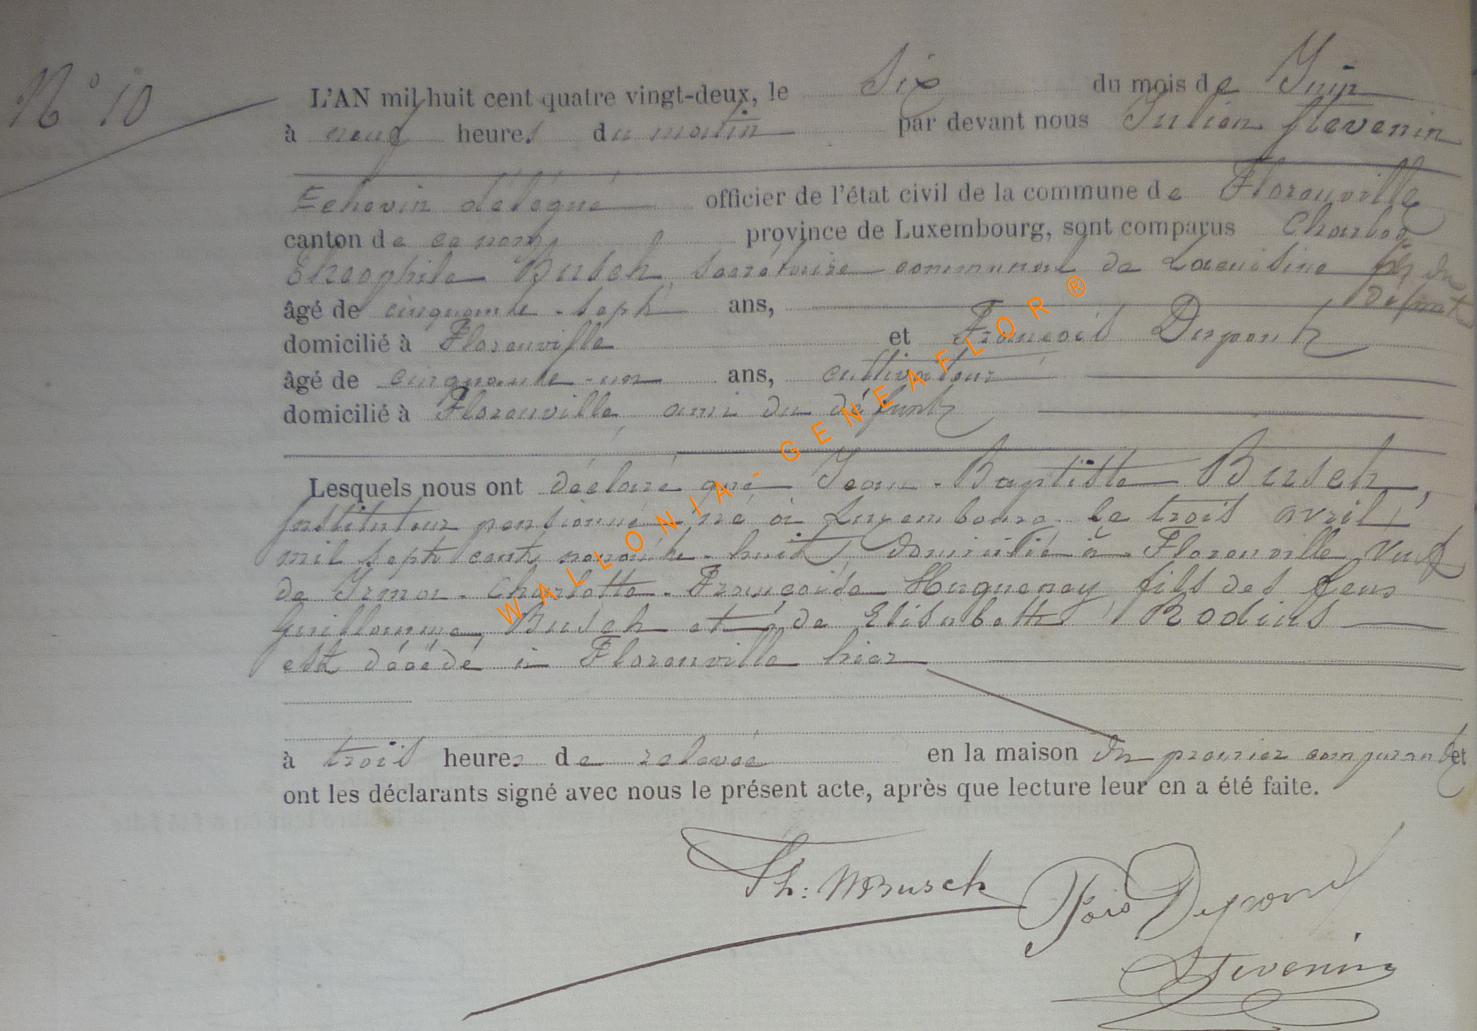 N° 10
L'AN mil huit cent quatre vingt-deux, le Six du mois de Juin
à neuf heures du matin par devant nous Julien Stevenin
Echevin délégué officier de l'état civil de la commune de Florenville
canton de ce nom, province de Luxembourg, sont comparus Charles
Théophile Busch, secrétaire communal de Lacuisine fils du
défunt
âgé de cinquante-sept ans,
domicilié à Florenville et François Dupont
âgé de cinquante-un ans, cultivateur
domicilié à Florenville, ami du défunt
Lesquels nous ont déclaré que Jean-Baptiste Busch,
Instituteur pensionné, né à Luxembourg le trois avril
mil sept cent nonante-huit, domicilié à Florenville, veuf
de Charlotte-Françoise Huguenay fils des feus
Guillaume Busch et de Elisabeth Rodius
est décédé à Florenville hier
à trois heures de relevée en la maison du premier comparant et
ont les déclarants signé avec nous le présent acte, après que lecture leur en a été faite.
Th: Busch
Fçois Dupont
Stevenin
WALLONIA-GENEAFLOR®